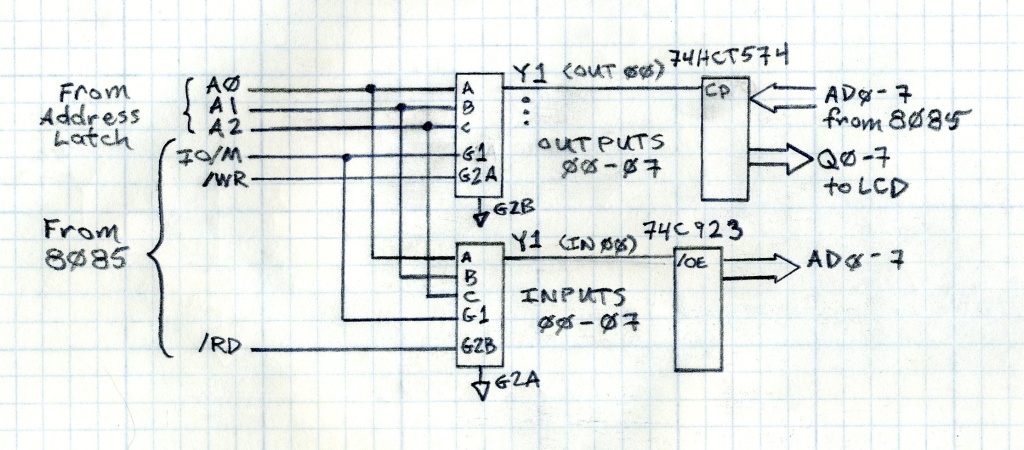 From
Address
Latch
AØ
A1
A2
IO/M
/WR
From
8Ø85
/RD
A
B
C
G1
G2A
G2B
Y1 (OUT ØØ)
OUTPUTS
ØØ-Ø7
74HCT574
CP
ADØ-7
from 8Ø85
QØ-7
to LCD
A
B
C
G1
G2B
G2A
Y1 (IN ØØ)
INPUTS
ØØ-Ø7
74C923
/OE
ADØ-7